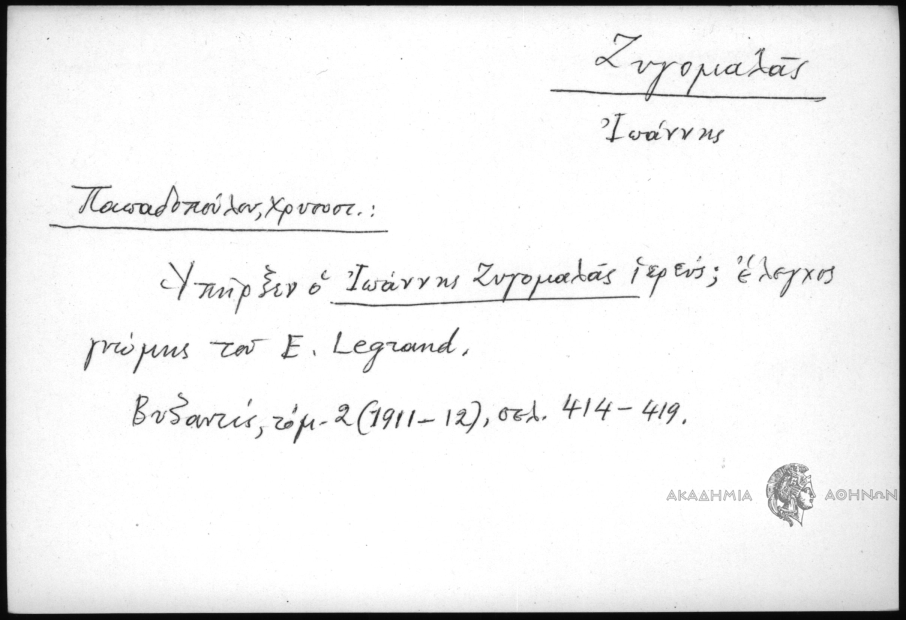 Ζυγομαλᾶς
Ἰωάννης
Παπαδοπούλου, Χρυσοστ.:
Ὑπῆρξεν ὁ Ἰωάννης Ζυγομαλᾶς ἱερεύς; ἔλεγχος
γνώμης τοῦ E. Legrand.
Βυζαντίς, τόμ. 2 (1911-12), σελ. 414-419.
ΑΚΑΔΗΜΙΑ ΑΘΗΝΩΝ